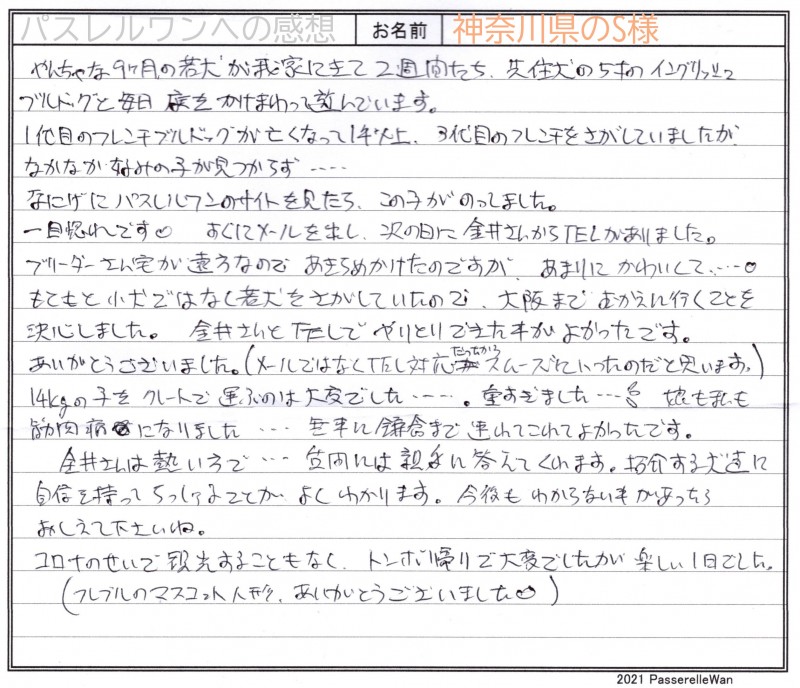 パスレルワンへの感想 お名前 神奈川県のS様
やんちゃな9ヶ月の若犬が我家にきて2週間たち、先住犬の5才のイングリッシュ
ブルドッグと毎日庭をかけまわって遊んでいます。
1代目のフレンチブルドッグが亡くなって1年以上、3代目のフレンチをさがしていましたが
なかなか好みの子が見つからず……
なにげにパスレルワンのサイトを見たら、この子がのってました。
一目惚れです♡ すぐにメールを出し、次の日に金井さんからTELがありました。
ブリーダーさん宅が遠方なのであきらめかけたのですが、あまりにかわいくて……♡
もともと小犬ではなく若犬をさがしていたので、大阪までむかえに行くことを
決心しました。 金井さんとTELでやりとりできた事がよかったです。
ありがとうございました。(メールではなくTEL対応だったからスムーズにいったのだと思います。)
14kgの子をクレートで運ぶのは大変でした……。重すぎました… 娘も私も
筋肉痛になりました… 無事に鎌倉まで連れてこれてよかったです。
金井さんは熱い方で… 質問には親身に答えてくれます。紹介する犬達に
自信を持ってらっしゃることがよくわかります。今後もわからない事があったら
おしえて下さいね。
コロナのせいで観光することもなく、トンボ帰りで大変でしたが楽しい1日でした。
(フレブルのマスコット人形、ありがとうございました♡)
2021 PasserelleWan